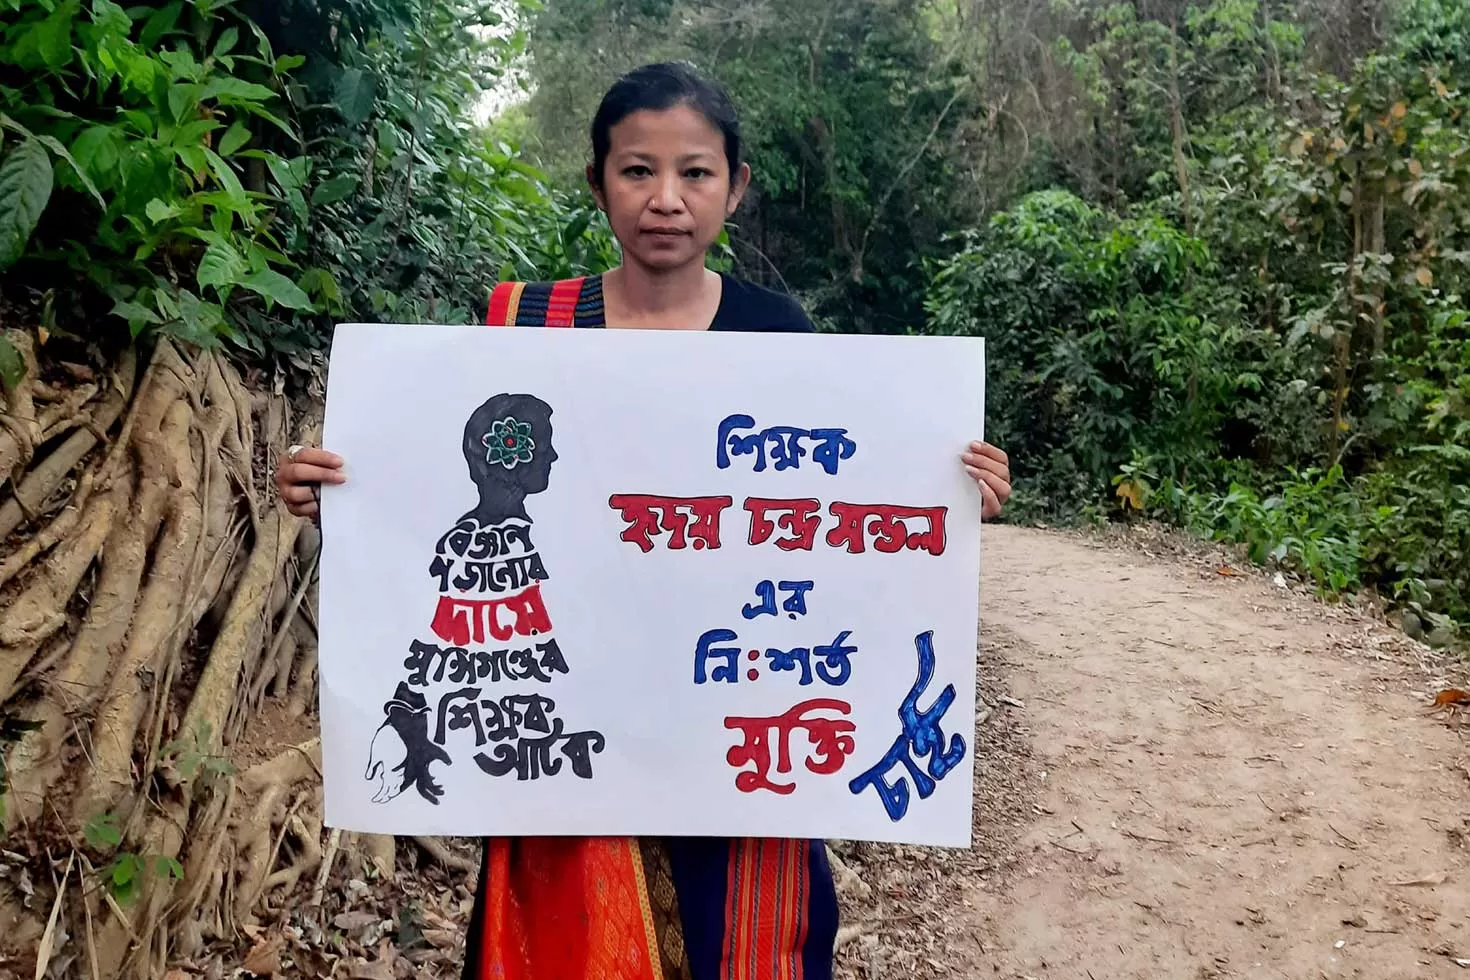 বিজ্ঞান
পড়ানোর
দায়ে
মুন্সিগঞ্জের
শিক্ষক
আটক
শিক্ষক
হৃদয় চন্দ্র মন্ডল
এর
নি:শর্ত
মুক্তি
চাই